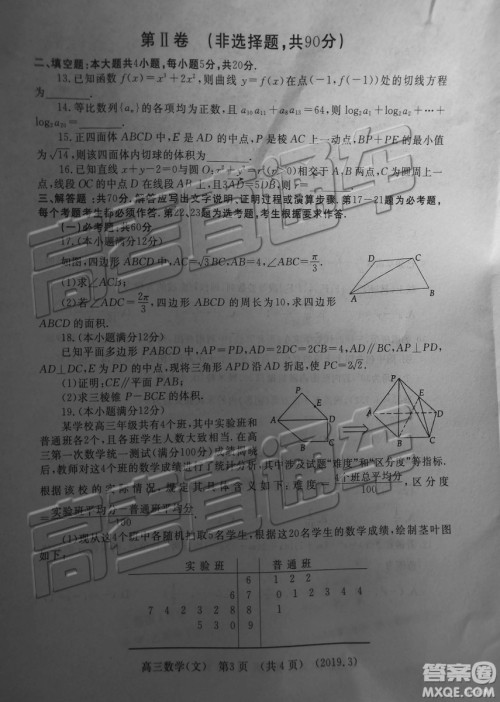 第Ⅱ卷 (非选择题,共90分)
二、填空题:本大题共4小题,每小题5分,共20分.
13.已知函数f(x)=x³+2x²,则曲线y=f(x)在点(-1,f(-1))处的切线方程
为
14.等比数列{aₙ}的各项均为正数,且a₁₀a₁₁+a₈a₁₃=64,则log₂a₁+log₂a₂+…+
log₂a₂₀=
15.正四面体ABCD中,E是AD的中点,P是棱AC上一动点,BP+PE的最小值
为√14,则该四面体内切球的体积为
16.已知直线x+y-2=0与圆O:
相交于A,B两点,C点为圆上的一
点,线段OC的中点D在线段AB上,且3AD=5DB,则r=
三、解答题:共70分,解答应写出文字说明、证明过程或演算步骤.第17~21题为必考题,
每个考题考生都必须作答.第22,23题为选考题,考生根据要求作答.
(一)必考题:共60分
17.(本小题满分12分)
如图,四边形ABCD中,AC=√3BC,AB=4,∠ABC=π/3.
(1)求∠ACB;
(2)若∠ADC=2π/3,四边形ABCD的周长为10,求四边形
ABCD的面积.
A B C D
18.(本小题满分12分)
已知平面多边形PABCD中,PA=PD,AD=2DC=2BC=4,AD∥BC,AP⊥PD,
AD⊥DC,E为PD的中点,现将三角形APD沿AD折起,使PC=2√2.
(1)证明:CE∥平面ABP;
(2)求三棱锥P-BCE的体积.
19.(本小题满分12分)
某学校高三年级共有4个班,其中实验班和
普通班各2个,且各班学生人数大致相当.在高
三第一次数学统一测试(满分100分)成绩揭晓
后,教师对这4个班的数学成绩进行了统计分析,其中涉及试题“难度”和“区分度”等指标.
根据该校的实际情况,规定其具体含义如下:难度=4个班总平均分/100,区分度
=实验班平均分-普通班平均分/100
(1)现从这4个班中各随机抽取5名学生,根据这20名学生的数学成绩,绘制茎叶图
如下:
实验班 普通班
6 1 2 2
8 6 7
7 4 2 3 2 8 8 8 1
5 3 0 9
高三数学(文) 第3页 (共4页) (2019.3)
高考直通车
高考直通车
答案圈
MXQE.COM